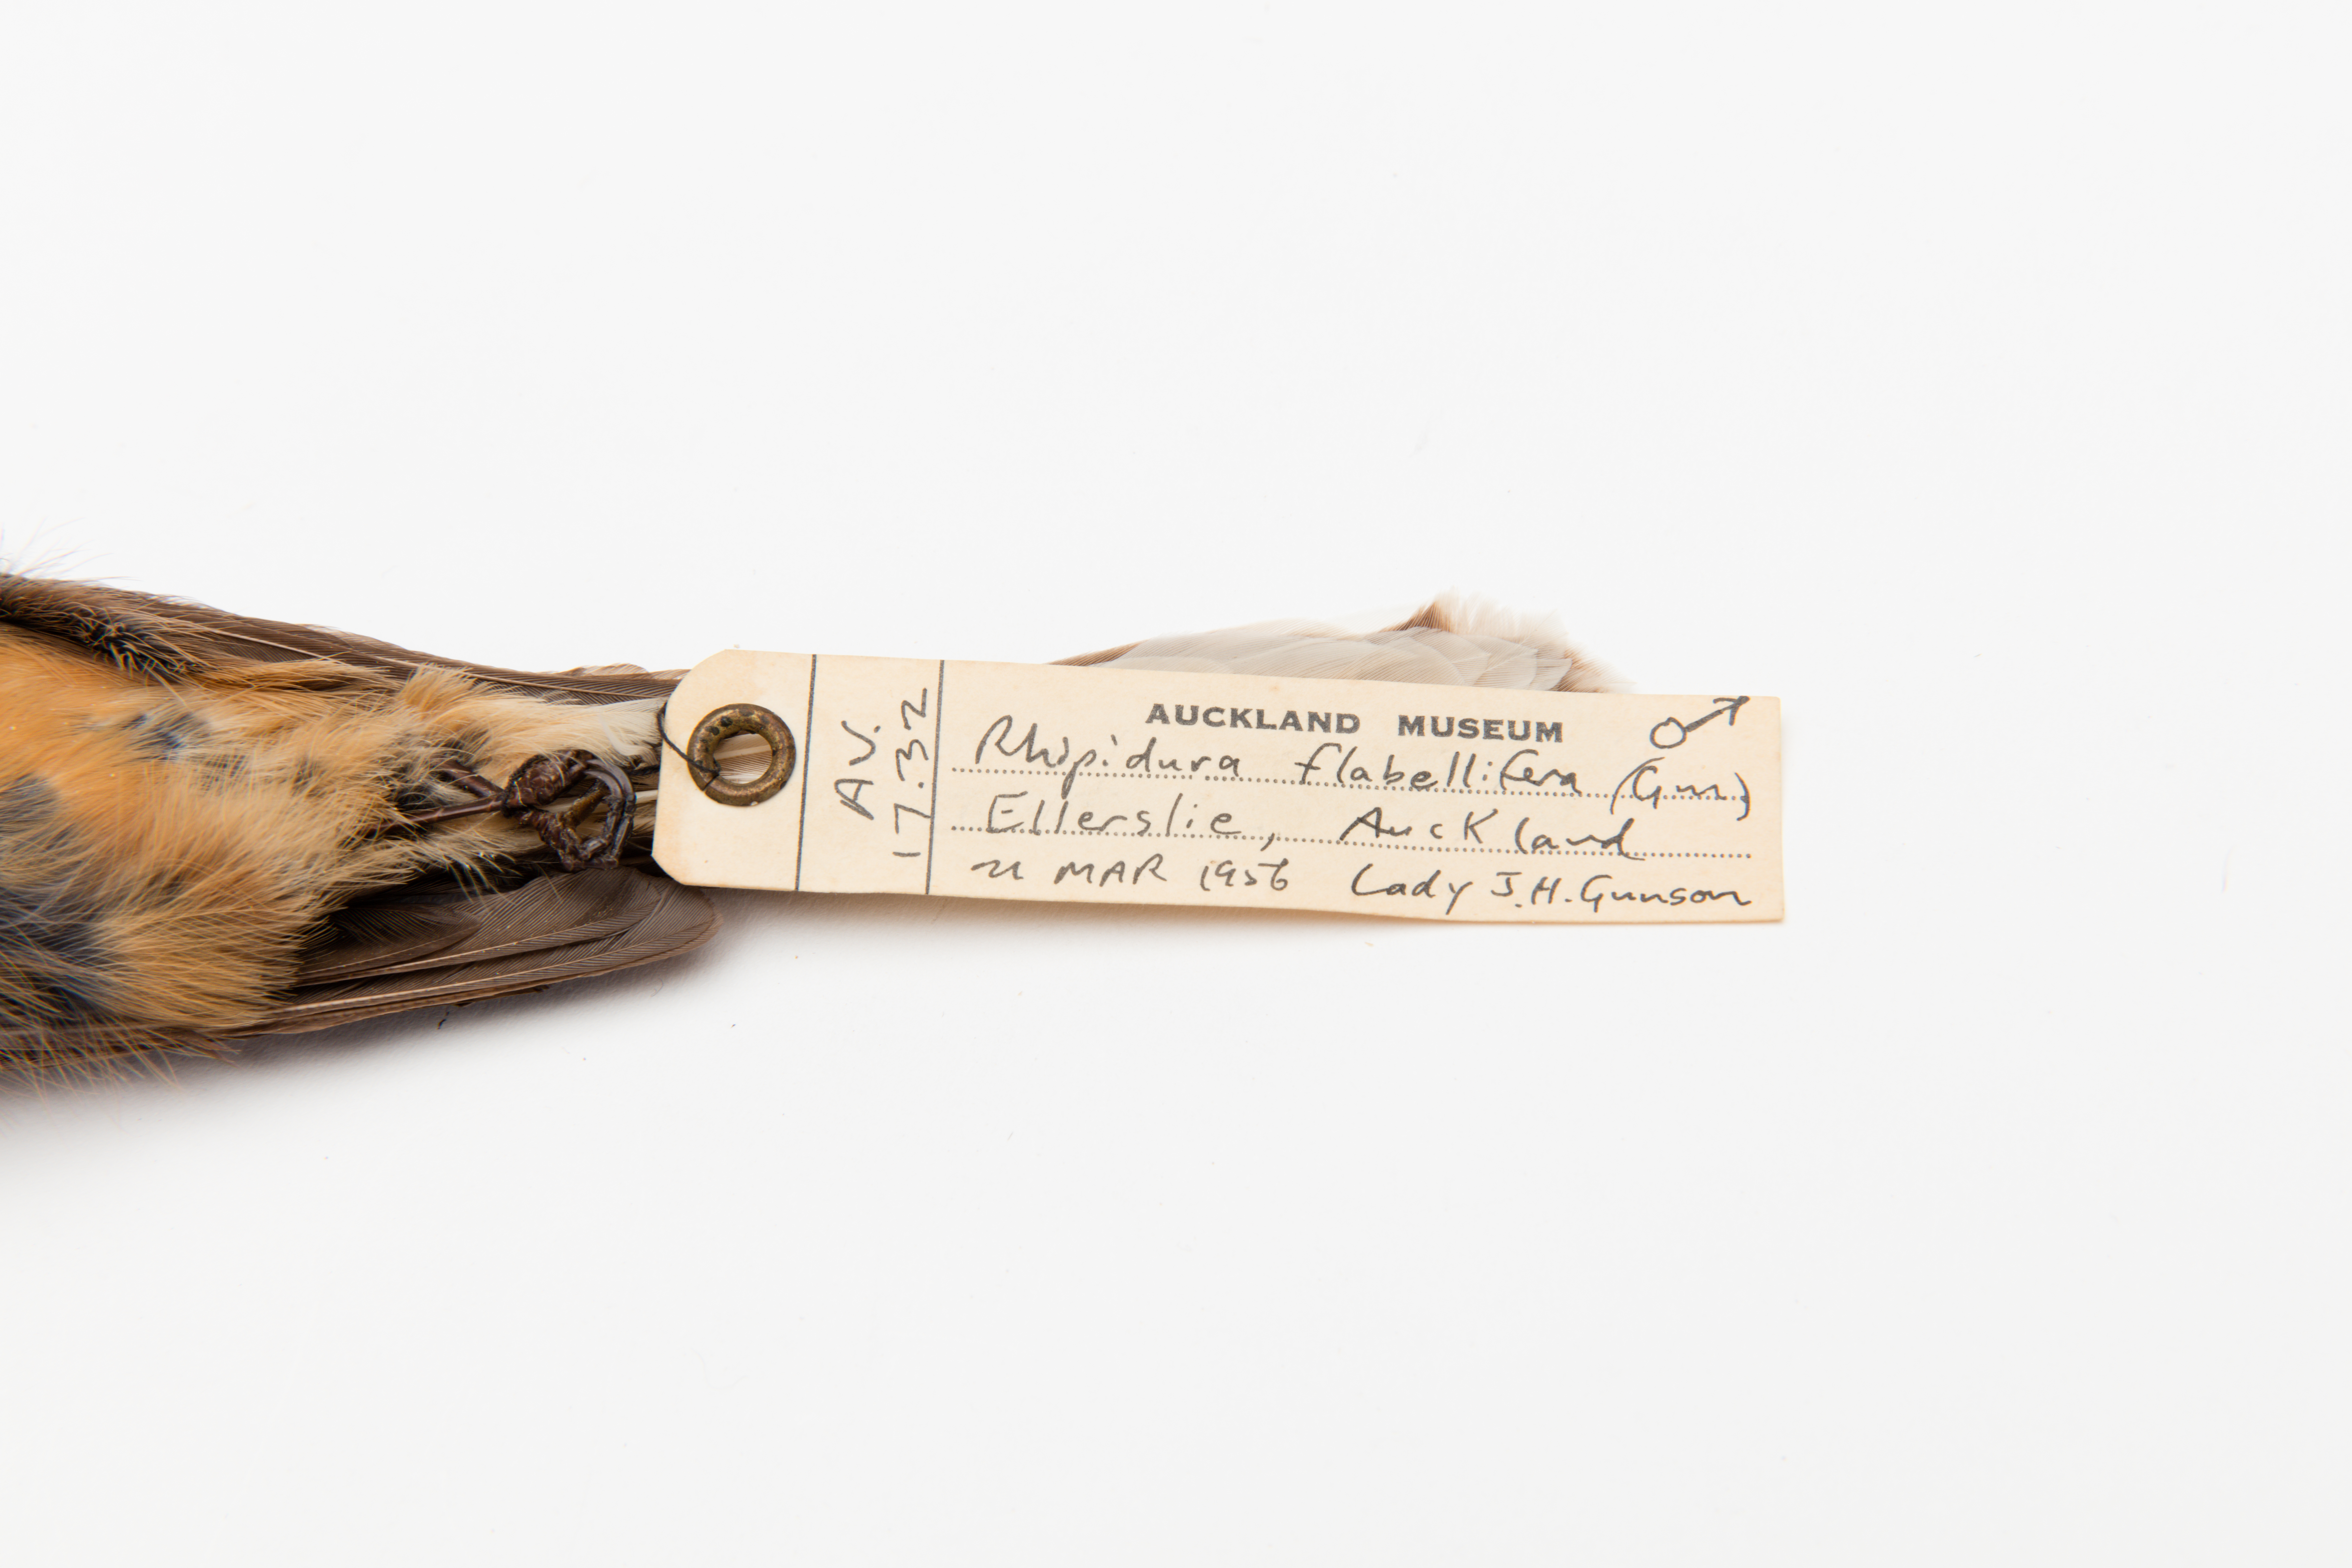 AV.
17.32
AUCKLAND MUSEUM ♂
Rhipidura flabellifera (Gm.)
Ellerslie, Auckland
21 MAR 1956 Lady J.H. Gunson